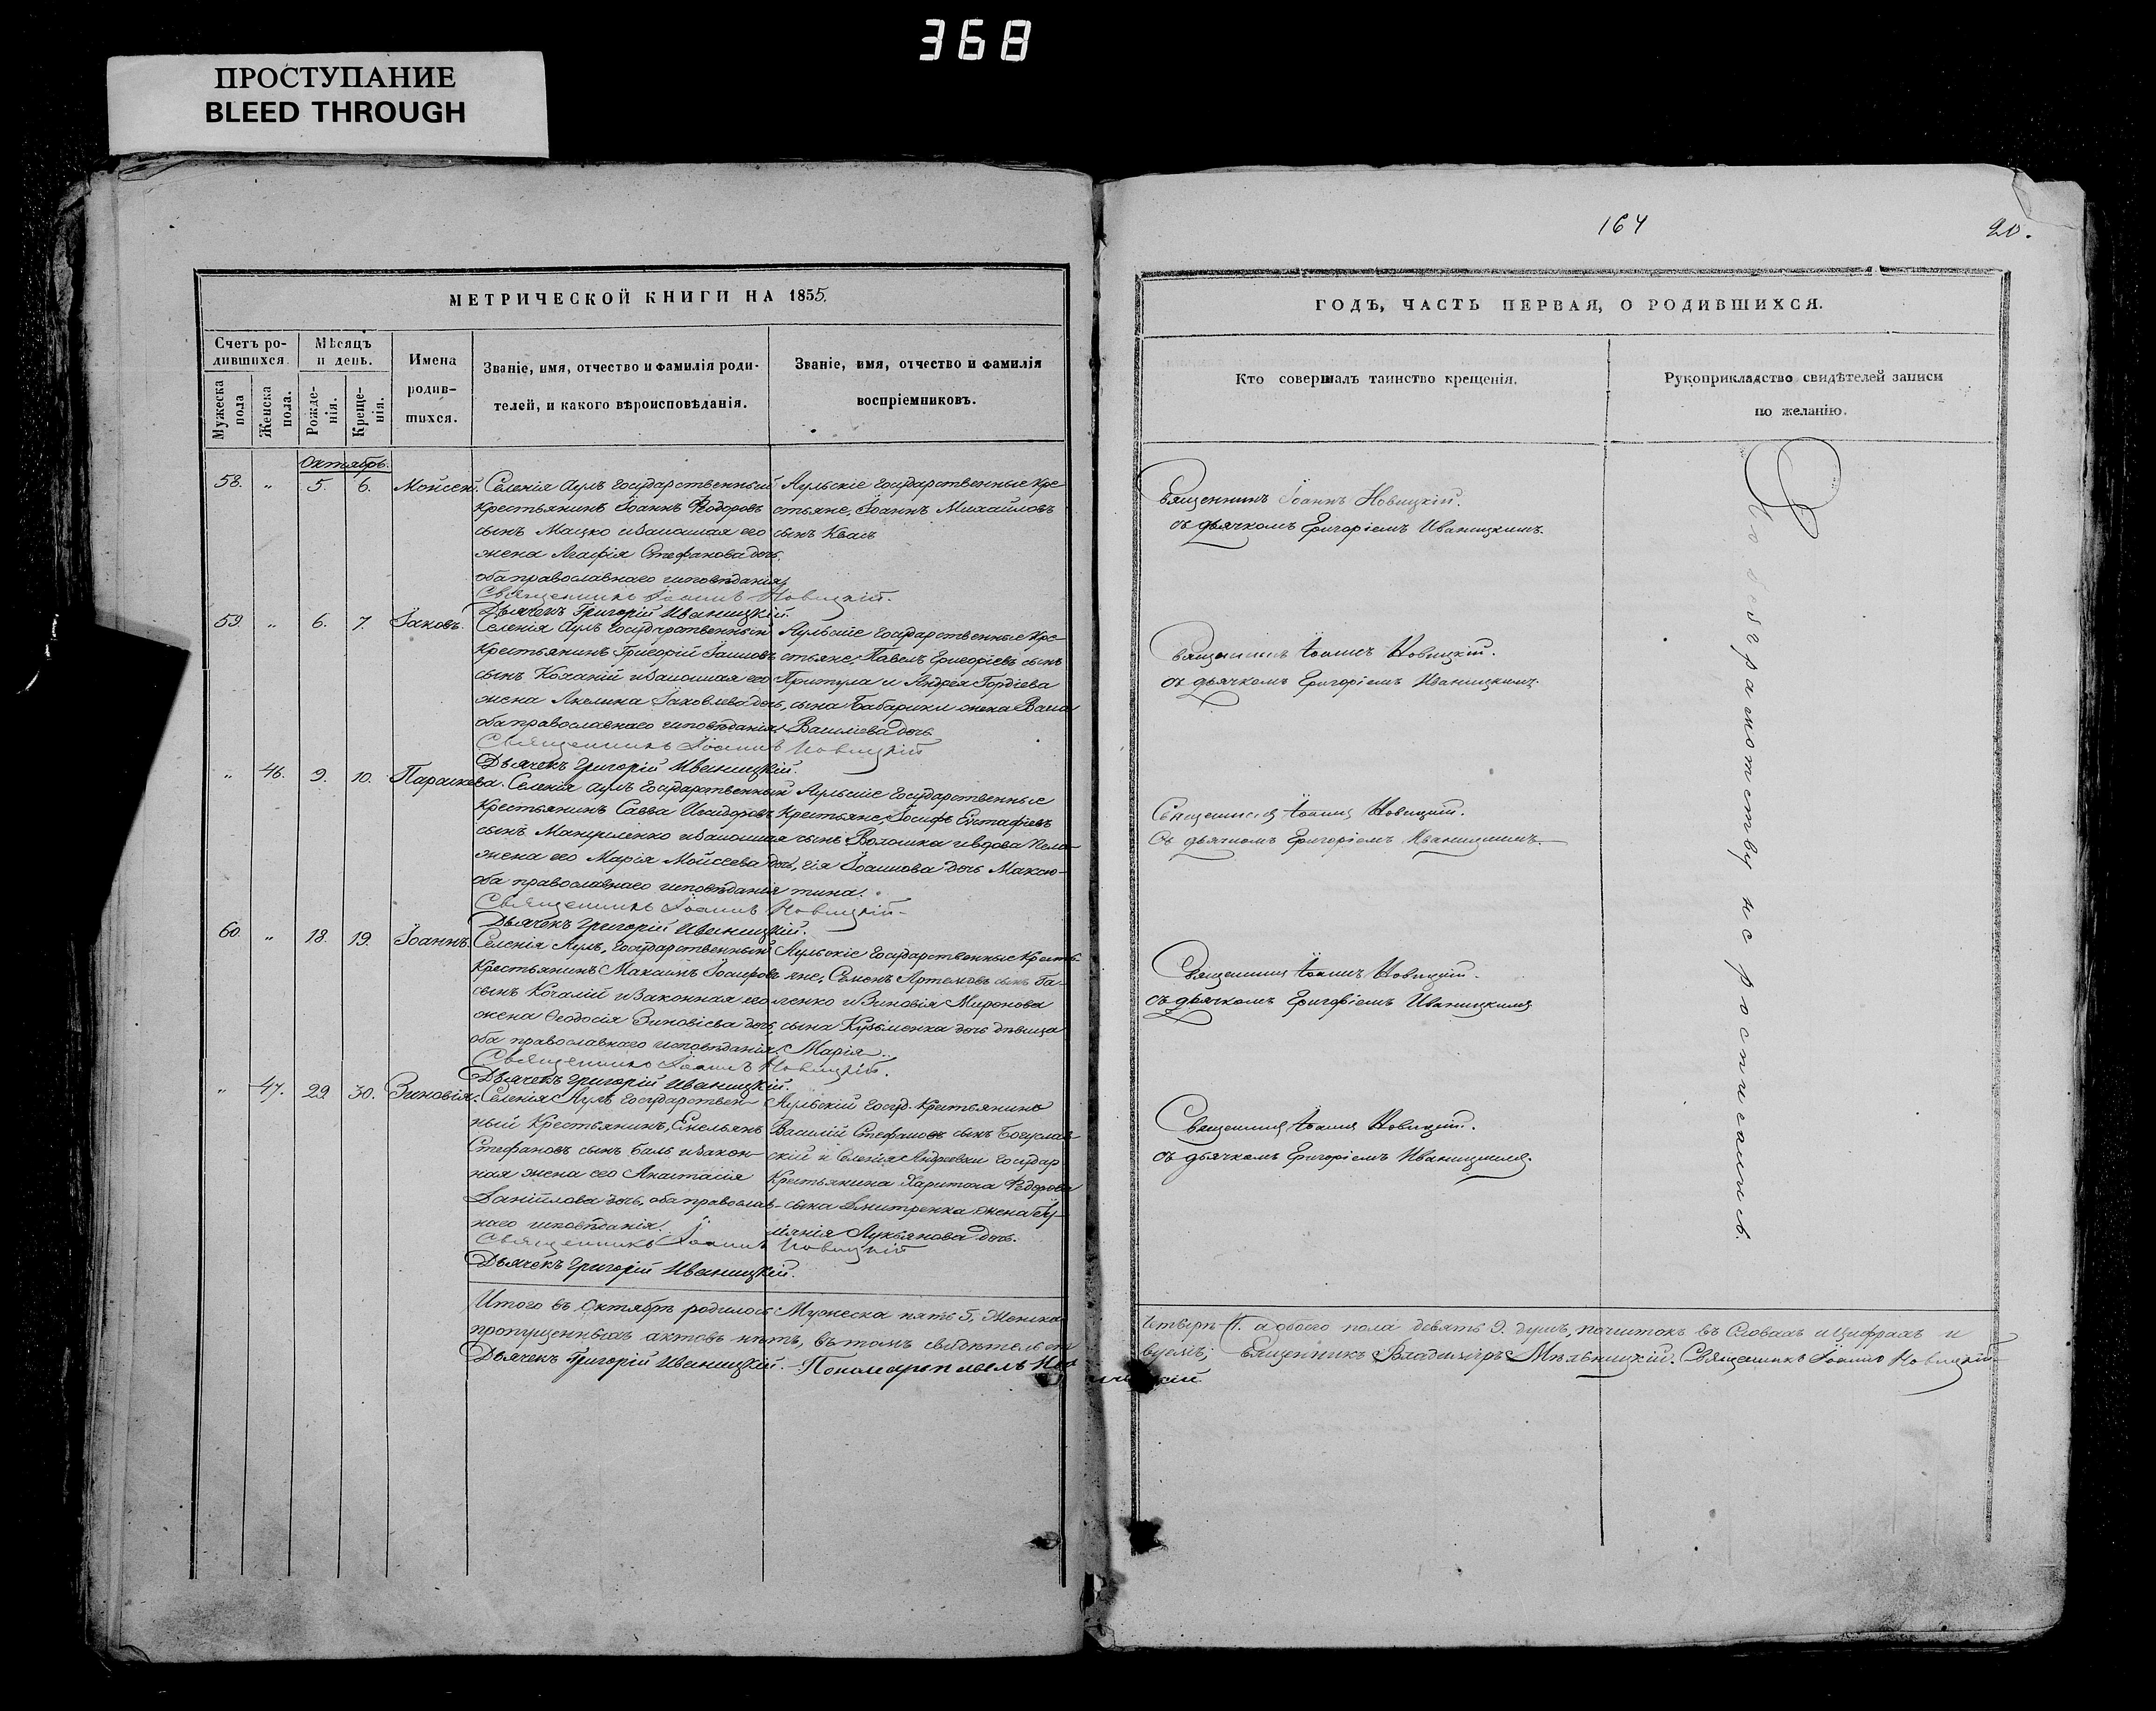 368
ПРОСТУПАНИЕ
BLEED THROUGH
МЕТРИЧЕСКОЙ КНИГИ НА 1855.
Счетъ ро-
дившихся.
Мѣсяцъ
и день.
Мужеска
пола
Женска
пола.
Рожде-
нія.
Креще-
нія.
Имена
родив-
шихся.
Званіе, имя, отчество и фамилія роди-
телей, и какого вѣроисповѣданія.
Званіе, имя, отчество и фамилія
воспріемниковъ.
Октябрь.
58. „ 5. 6. Мойсей.
Селенія Аулъ Государственный
крестьянинъ Іоаннъ Ѳеодоровъ
сынъ Мацко и законная его
жена Агафія Стефанова дочь,
оба православнаго исповѣданія.
Священникъ Іоаннъ Новицкій.
Дьячекъ Григорій Иваницкій.
Аульскіе Государственные Кре
стьяне, Іоаннъ Михайловъ
сынъ Квась
59. „ 6. 7. Іаковъ.
Селенія Аулъ Государственный
Крестьянинъ Григорій Іоанновъ
сынъ Коханій и законная его
жена Акелина Іаковлева дочь,
оба православнаго исповѣданія.
Священникъ Іоаннъ Новицкій
Дьячекъ Григорій Иваницкій.
Аульскіе Государственные Кре-
стьяне, Павелъ Григоріевъ сынъ
Притула и Андрея Гордіева
сына Бабарики жена
Василіева дочь
„ 46. 9. 10. Параскева.
Селенія Аулъ Государственный
Крестьянинъ Савва Исидоровъ
сынъ Манриленко и законная
жена его Марія Мойсеева дочь,
оба православнаго исповѣданія
Священникъ Іоаннъ Новицкій.
Дьячекъ Григорій Иваницкій.
Аульскіе Государственные
Крестьяне, Іосифъ Евстафіевъ
сынъ Волошка и вдова Пела-
гія Іоаннова дочь Максю-
тина.
60. „ 18. 19. Іоаннъ.
Селенія Аулъ, Государственный
Крестьянинъ Максимъ Іосифовъ
сынъ Кочалій и законная его
жена Ѳеодосія Зиновіева дочь,
оба православнаго исповѣданія.
Священникъ Іоаннъ Новицкій.
Дьячекъ Григорій Иваницкій.
Аульскіе Государственные Кресть-
яне, Семенъ Артемовъ сынъ Га-
ленко и Зиновія Миронова
сына Кузьменка дочь дѣвица
Марія.
„ 47. 29. 30. Зиновія.
Селенія Аулъ Государствен-
ный Крестьянинъ, Емельянъ
Стефановъ сынъ Баль и закон-
ная жена его Анастасія
Даніилова дочь, оба православ-
наго исповѣданія.
Священникъ Іоаннъ Новицкій
Дьячекъ Григорій Иваницкій.
Аульскій Госуд. Крестьянинъ
Василій Стефановъ сынъ Богуслав-
скій и Селенія Андреевки Государ
Крестьянина Харитона Ѳедорова
сына Дмитренка жена
Лукьянова дочь.
Итого въ Октябрѣ родилось Мужеска пять 5, Женска
пропущенныхъ актовъ нѣтъ, въ томъ свидѣтельст
Дьячекъ Григорій Иваницкій. Пономарь Павелъ
164
20.
ГОДЪ, ЧАСТЬ ПЕРВАЯ, О РОДИВШИХСЯ.
Кто совершалъ таинство крещенія.
Рукоприкладство свидѣтелей записи
по желанію.
Священникъ Іоаннъ Новицкій.
съ дьячкомъ Григоріемъ Иваницкимъ.
Священникъ Іоаннъ Новицкій.
съ дьячкомъ Григоріемъ Иваницкимъ.
Священникъ Іоаннъ Новицкій.
Съ дьячкомъ Григоріемъ Иваницкимъ.
Священникъ Іоаннъ Новицкій.
съ дьячкомъ Григоріемъ Иваницкимъ
Священникъ Іоаннъ Новицкій.
съ дьячкомъ Григоріемъ Иваницкимъ.
По безграмотству не росписались.
4. а обоего пола девять 9. душъ, почистокъ въ Словахъ и Цифрахъ и
вуемъ; Священникъ Владимиръ Мѣльницкій. Священникъ Іоаннъ Новицкій